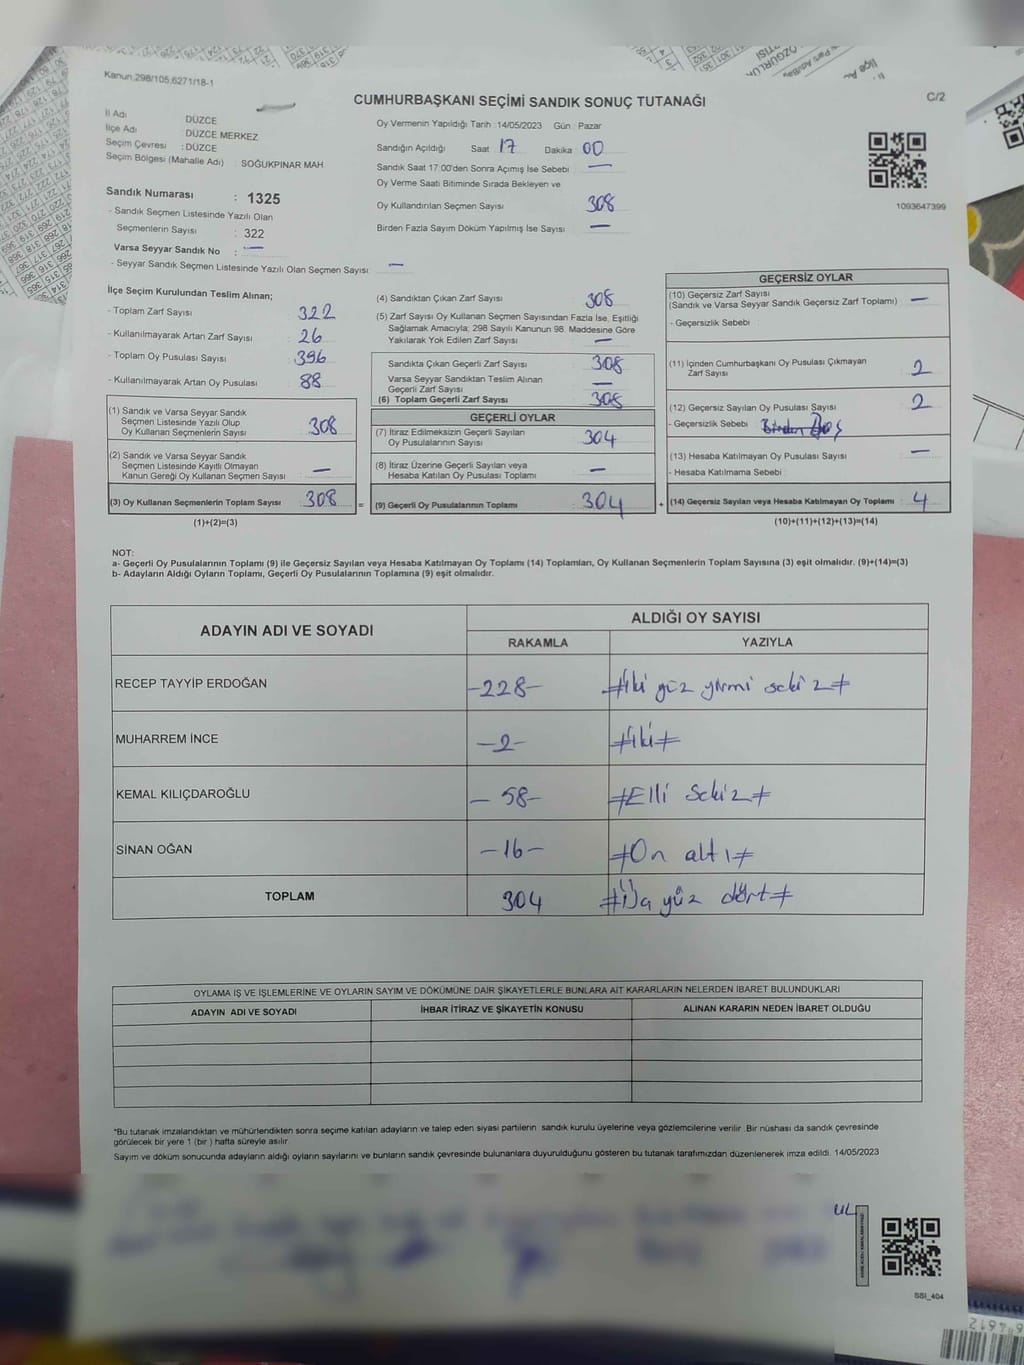 Kanun.298/105;6271/18-1
CUMHURBAŞKANI SEÇİMİ SANDIK SONUÇ TUTANAĞI
C/2
İl Adı DÜZCE
İlçe Adı DÜZCE MERKEZ
Seçim Çevresi : DÜZCE
Seçim Bölgesi (Mahalle Adı) : SOĞUKPINAR MAH
Sandık Numarası : 1325
- Sandık Seçmen Listesinde Yazılı Olan
Seçmenlerin Sayısı : 322
Varsa Seyyar Sandık No : —
- Seyyar Sandık Seçmen Listesinde Yazılı Olan Seçmen Sayısı : —
Oy Vermenin Yapıldığı Tarih :14/05/2023 Gün : Pazar
Sandığın Açıldığı Saat 17 Dakika 00
Sandık Saat 17:00'den Sonra Açımış İse Sebebi : —
Oy Verme Saati Bitiminde Sırada Bekleyen ve
Oy Kullandırılan Seçmen Sayısı 308
Birden Fazla Sayım Döküm Yapılmış İse Sayısı : —
1093647399
İlçe Seçim Kurulundan Teslim Alınan;
- Toplam Zarf Sayısı 322
- Kullanılmayarak Artan Zarf Sayısı 26
- Toplam Oy Pusulası Sayısı 396
- Kullanılmayarak Artan Oy Pusulası 88
(1) Sandık ve Varsa Seyyar Sandık
Seçmen Listesinde Yazılı Olup
Oy Kullanan Seçmenlerin Sayısı 308
(2) Sandık ve Varsa Seyyar Sandık
Seçmen Listesinde Kayıtlı Olmayan
Kanun Gereği Oy Kullanan Seçmen Sayısı : —
(3) Oy Kullanan Seçmenlerin Toplam Sayısı : 308
(1)+(2)=(3)
=
(4) Sandıktan Çıkan Zarf Sayısı 308
(5) Zarf Sayısı Oy Kullanan Seçmen Sayısından Fazla İse, Eşitliği
Sağlamak Amacıyla; 298 Sayılı Kanunun 98. Maddesine Göre
Yakılarak Yok Edilen Zarf Sayısı : —
Sandıkta Çıkan Geçerli Zarf Sayısı : 308
Varsa Seyyar Sandıktan Teslim Alınan
Geçerli Zarf Sayısı : —
(6) Toplam Geçerli Zarf Sayısı : 308
GEÇERLİ OYLAR
(7) İtiraz Edilmeksizin Geçerli Sayılan
Oy Pusulalarının Sayısı : 304
(8) İtiraz Üzerine Geçerli Sayılan veya
Hesaba Katılan Oy Pusulası Toplamı : —
(9) Geçerli Oy Pusulalarının Toplamı : 304
+
GEÇERSİZ OYLAR
(10) Geçersiz Zarf Sayısı
(Sandık ve Varsa Seyyar Sandık Geçersiz Zarf Toplamı) : —
- Geçersizlik Sebebi :
(11) İçinden Cumhurbaşkanı Oy Pusulası Çıkmayan
Zarf Sayısı : 2
(12) Geçersiz Sayılan Oy Pusulası Sayısı : 2
- Geçersizlik Sebebi : Boş
(13) Hesaba Katılmayan Oy Pusulası Sayısı : —
- Hesaba Katılmama Sebebi :
(14) Geçersiz Sayılan veya Hesaba Katılmayan Oy Toplamı : 4
(10)+(11)+(12)+(13)=(14)
NOT:
a- Geçerli Oy Pusulalarının Toplamı (9) ile Geçersiz Sayılan veya Hesaba Katılmayan Oy Toplamı (14) Toplamları, Oy Kullanan Seçmenlerin Toplam Sayısına (3) eşit olmalıdır. (9)+(14)=(3)
b- Adayların Aldığı Oyların Toplamı, Geçerli Oy Pusulalarının Toplamına (9) eşit olmalıdır.
ADAYIN ADI VE SOYADI ALDIĞI OY SAYISI
RAKAMLA YAZIYLA
RECEP TAYYİP ERDOĞAN -228- #iki yüz yirmi sekiz#
MUHARREM İNCE -2- #iki#
KEMAL KILIÇDAROĞLU -58- #Elli Sekiz#
SİNAN OĞAN -16- #On altı#
TOPLAM 304 #Üç yüz dört#
OYLAMA İŞ VE İŞLEMLERİNE VE OYLARIN SAYIM VE DÖKÜMÜNE DAİR ŞİKAYETLERLE BUNLARA AİT KARARLARIN NELERDEN İBARET BULUNDUKLARI
ADAYIN ADI VE SOYADI İHBAR İTİRAZ VE ŞİKAYETİN KONUSU ALINAN KARARIN NEDEN İBARET OLDUĞU
*Bu tutanak imzalandıktan ve mühürlendikten sonra seçime katılan adayların ve talep eden siyasi partilerin sandık kurulu üyelerine veya gözlemcilerine verilir .Bir nüshası da sandık çevresinde
görülecek bir yere 1 (bir ) hafta süreyle asılır.
Sayım ve döküm sonucunda adayların aldığı oyların sayılarını ve bunların sandık çevresinde bulunanlara duyurulduğunu gösteren bu tutanak tarafımızdan düzenlenerek imza edildi. 14/05/2023
UL
SSI_404